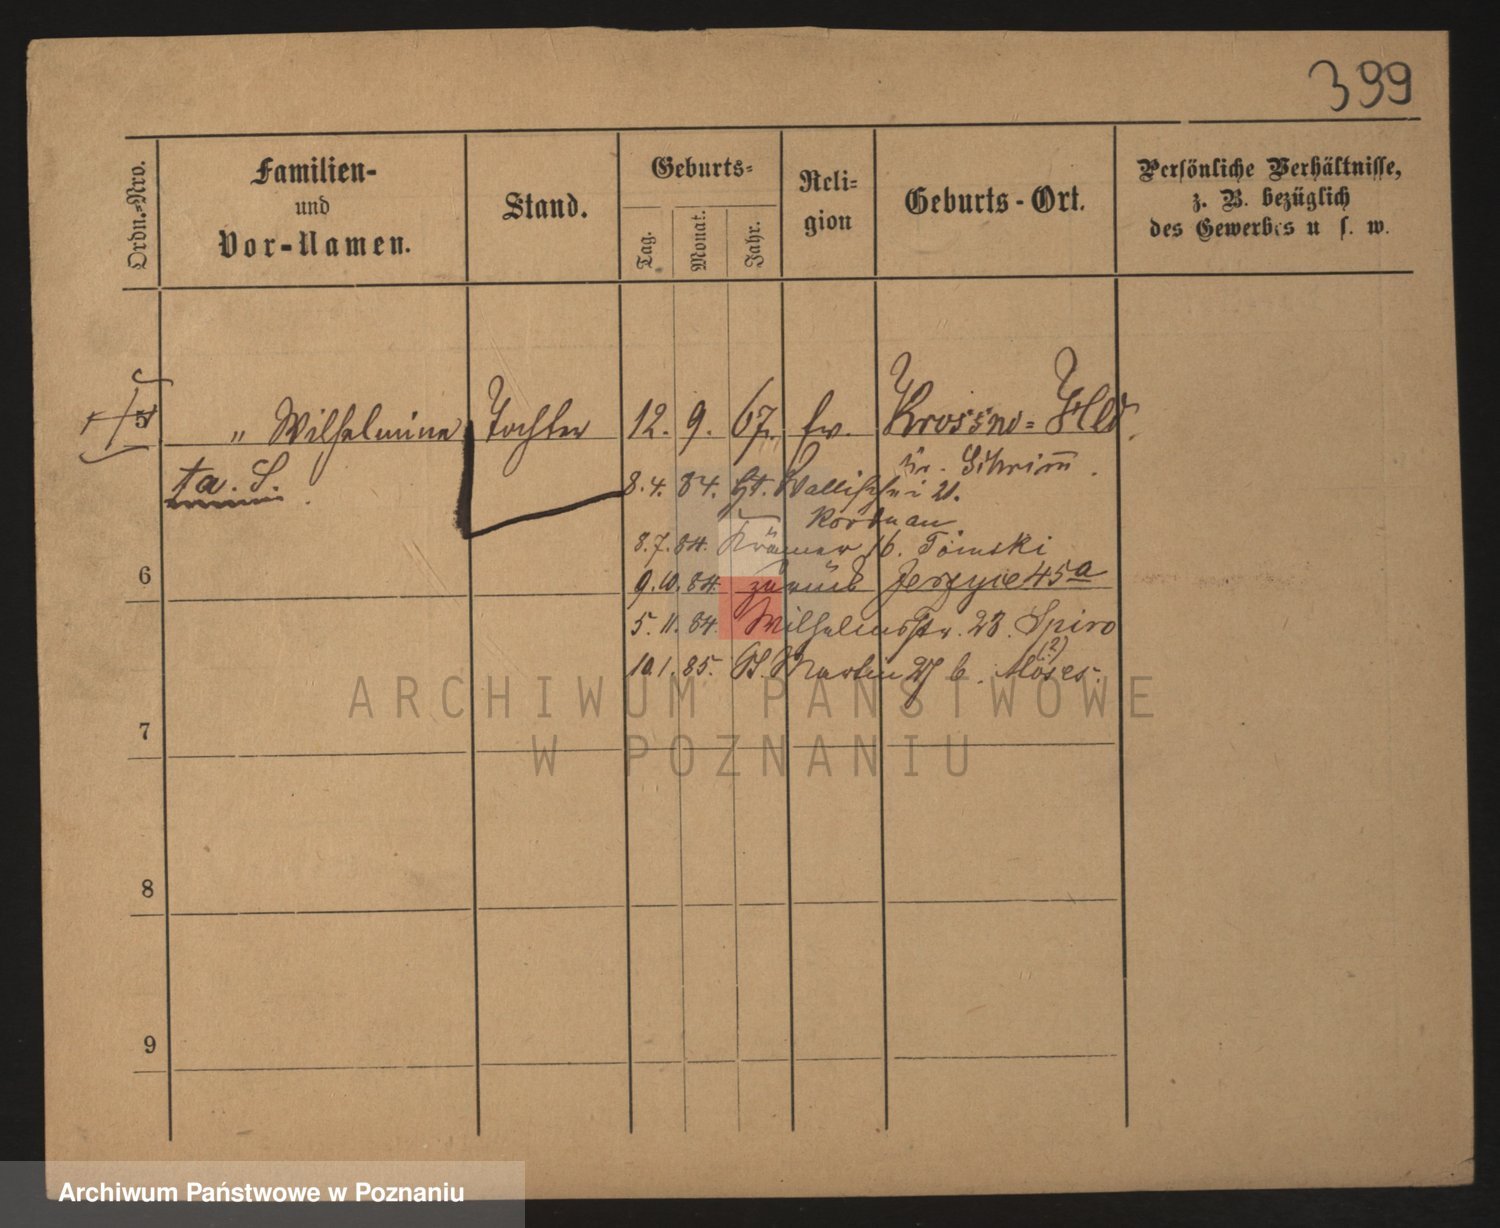 399
Ordn.-Nro.
Familien-
und
Vor-Namen.
Stand.
Geburts-
Tag.
Monat.
Jahr.
Reli-
gion
Geburts-Ort.
Persönliche Verhältnisse,
z. B. bezüglich
des Gewerbes u. s. w.
5 " Wilhelmine Tochter 12. 9. 67. ev. Krossno-Hld
Kr. Schrimm.
†a. S.
8.4. 84. Gr. Wallischei 21.
Korduan.
8.7.84. Krämer 16. Tomski
6
9.10.84. zurück Jerzyce 45a
5.11.84. Wilhelmsstr. 23. Spiro
(?)
10.1.85. St. Martin 27 b. Moses.
7
8
9
ARCHIWUM PAŃSTWOWE
W POZNANIU
Archiwum Państwowe w Poznaniu